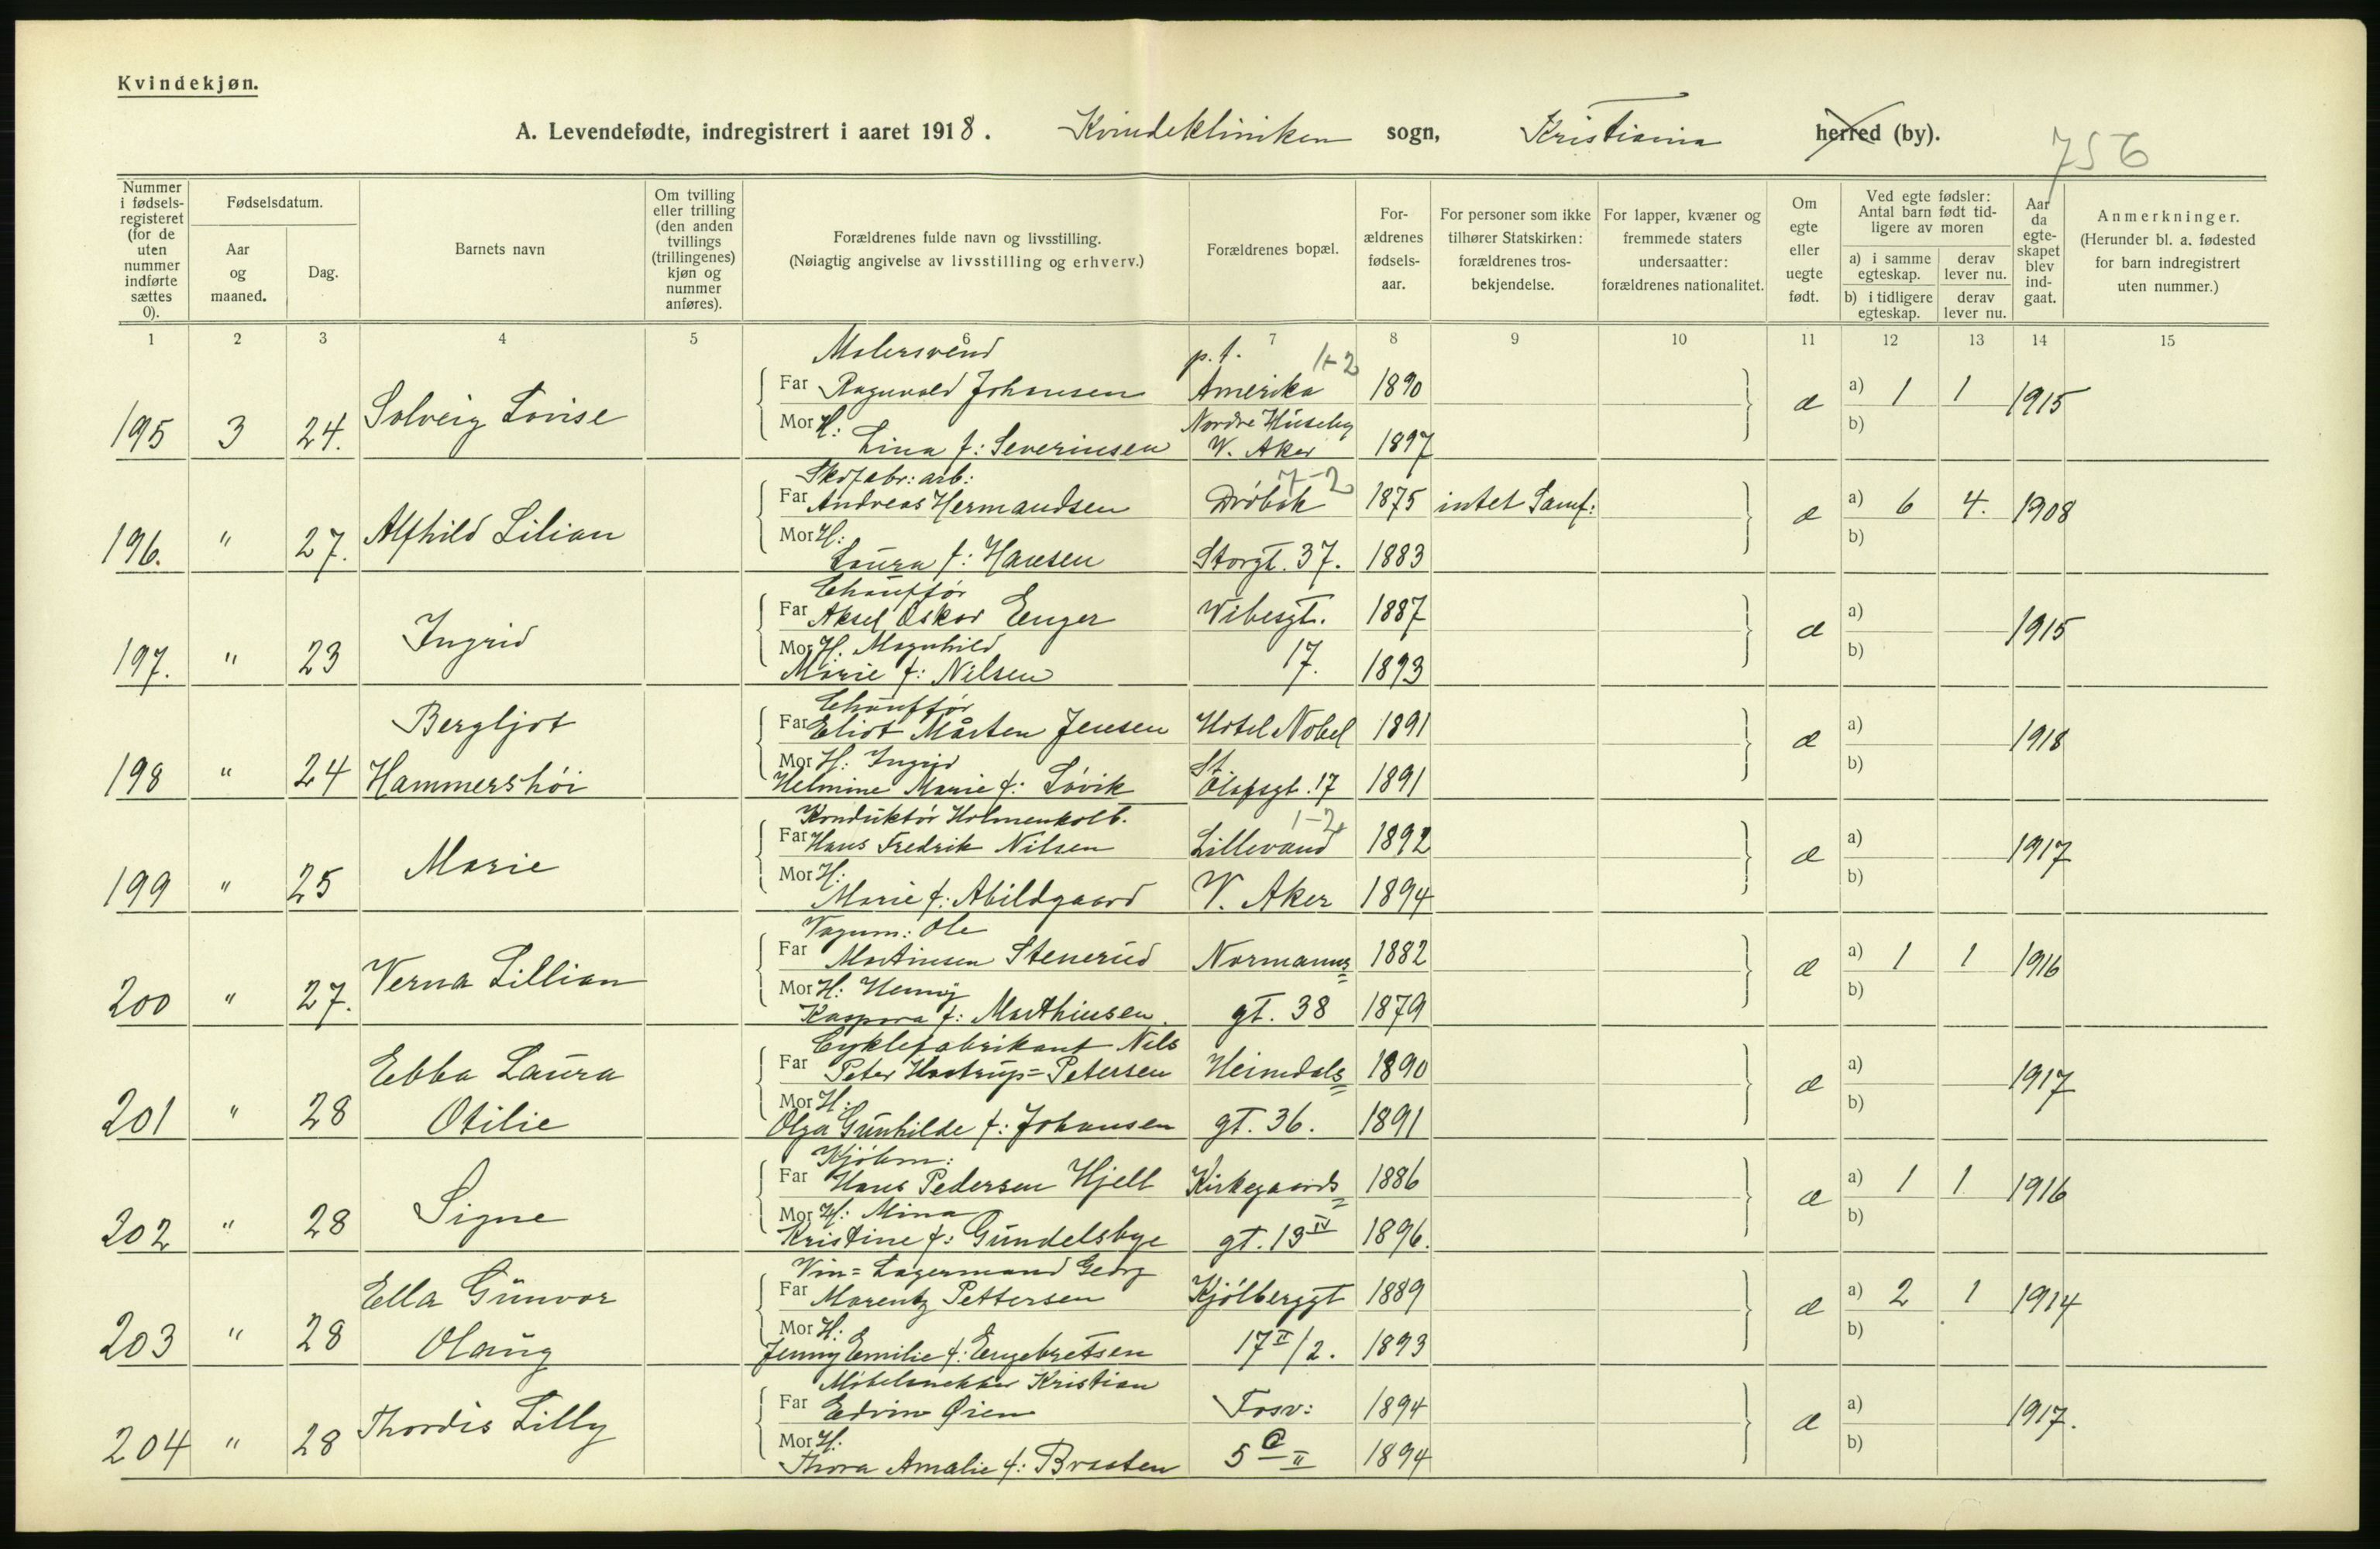 Kvindekjøn.
A. Levendefødte, indregistrert i aaret 1918. Kvindekliniken sogn, Kristiania herred (by).
756
Nummer i fødsels-registeret (for de uten nummer indførte sættes 0).
Fødselsdatum.
Aar og maaned.
Dag.
Barnets navn
Om tvilling eller trilling (den anden tvillings (trillingenes) kjøn og nummer anføres).
Forældrenes fulde navn og livsstilling. (Nøiagtig angivelse av livsstilling og erhverv.)
Forældrenes bopæl.
For-ældrenes fødsels-aar.
For personer som ikke tilhører Statskirken: forældrenes tros-bekjendelse.
For lapper, kvæner og fremmede staters undersaatter: forældrenes nationalitet.
Om egte eller uegte født.
Ved egte fødsler: Antal barn født tid-ligere av moren
a) i samme egteskap.
derav lever nu.
b) i tidligere egteskap.
derav lever nu.
Aar da egte-skapet blev ind-gaat.
Anmerkninger. (Herunder bl. a. fødested for barn indregistrert uten nummer.)
1 2 3 4 5 6 7 8 9 10 11 12 13 14 15
Malersvend p.t. 1+2
Far Ragnvald Johansen Amerika 1890
195 3 24. Solveig Lovise æ a) 1 1 1915
Mor H: Nordre Huseby b)
Lina f: Severinsen V. Aker 1897
Skofabr: arb: 7-2
Far Andreas Hermandsen Drøbak 1875 intet Samf:
196. " 27. Alfhild Lilian æ a) 6 4. 1908
Mor H: b)
Laura f: Hansen Storgt. 37. 1883
Chauffør
Far Aksel Oskar Enger Wibesgt. 1887
197. " 23 Ingrid æ a) 1915
Mor H. Magnhild b)
Marie f: Nilsen 17. 1893
Chauffør
Far Eliot Mårten Jensen Hotel Nobel 1891
198 " 24 Bergljot Hammershöi æ a) 1918
Mor H: Ingrid St. b)
Helmine Marie f: Løvik Olafsgt. 17 1891
Konduktør Holmenkolb. 1-2
Far Hans Fredrik Nilsen Lillevand 1892
199 " 25 Marie æ a) 1917
Mor H: b)
Marie f: Abildgaard V. Aker 1894
Vognm: Ole
Far Martinsen Stenerud Normanns= 1882
200 " 27. Verna Lillian æ a) 1 1 1916
Mor H: Henny b)
Kaspara f: Mathiesen. gt. 38 1879
Cyklefabrikant Nils
Far Peter Hostrup=Petersen Heimdals= 1890
201 " 28 Ebba Laura Otilie æ a) 1917
Mor H: b)
Olga Gunhilde f: Johansen gt. 36. 1891
Kjøbm:
Far Hans Pedersen Hjell Kirkegaards= 1886
202 " 28 Signe æ a) 1 1 1916
Mor H: Mina b)
Kristine f: Gundelsbye gt. 13 IV 1896.
Vin=Lagermand Georg
Far Marentz Pettersen Kjølberggt 1889
203 " 28 Ella Gunvor Olaug æ a) 2 1 1914
Mor H: b)
Jenny Emilie f: Engebretsen 17 II/2. 1893
Møbelsnekker Kristian
Far Edvin Øien Fosv: 1894
204 " 28 Thordis Lilly æ a) 1917.
Mor H: b)
Thora Amalie f: Braaten 5 a II 1894